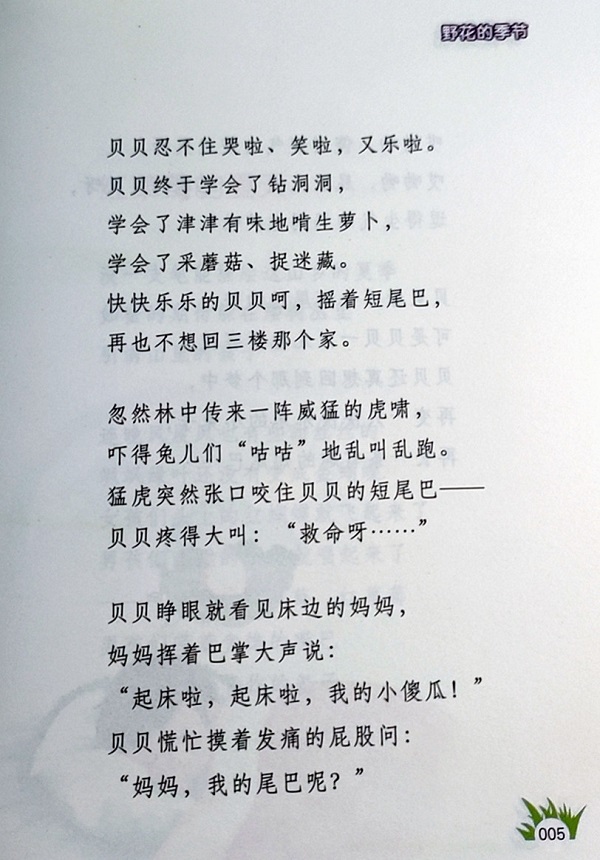 野花的季节
贝贝忍不住哭啦、笑啦，又乐啦。
贝贝终于学会了钻洞洞，
学会了津津有味地啃生萝卜，
学会了采蘑菇、捉迷藏。
快快乐乐的贝贝呵，摇着短尾巴，
再也不想回三楼那个家。
忽然林中传来一阵威猛的虎啸，
吓得兔儿们“咕咕”地乱叫乱跑。
猛虎突然张口咬住贝贝的短尾巴——
贝贝疼得大叫：“救命呀……”
贝贝睁眼就看见床边的妈妈，
妈妈挥着巴掌大声说：
“起床啦，起床啦，我的小傻瓜！”
贝贝慌忙摸着发痛的屁股问：
“妈妈，我的尾巴呢？”
005